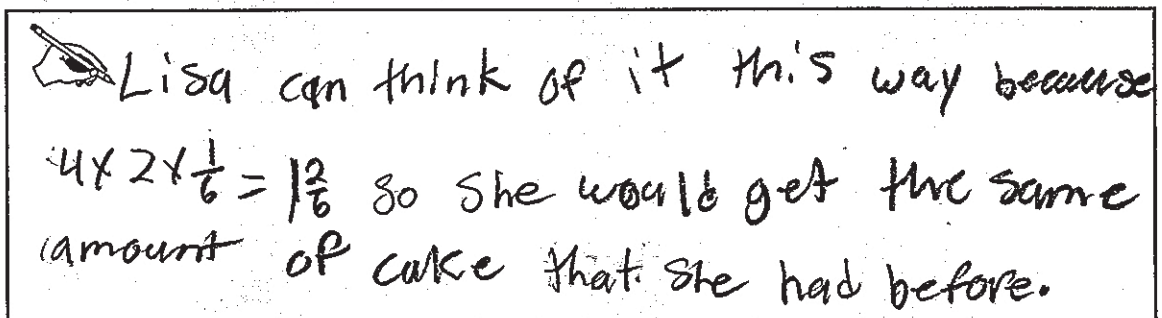 Lisa can think of it this way because
4x2x1/6 = 1 2/6 so she would get the same
amount of cake that she had before.